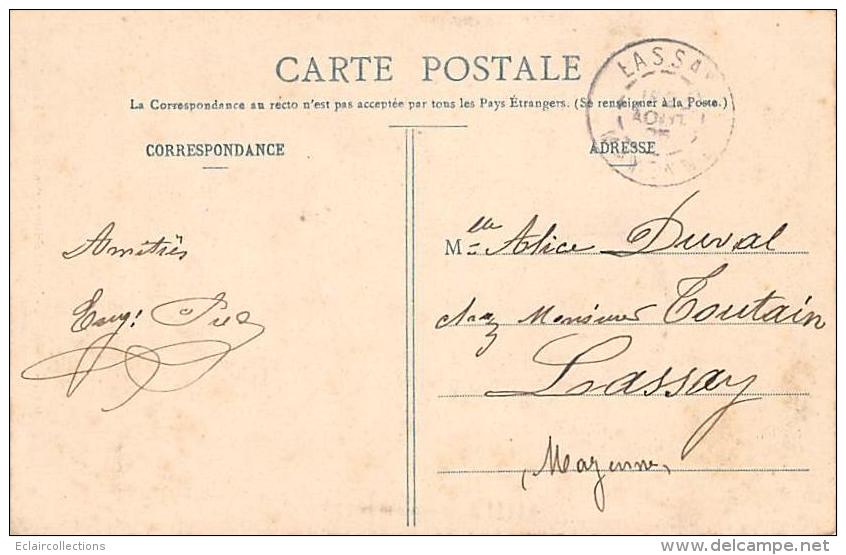 CARTE POSTALE
La Correspondance au recto n'est pas acceptée par tous les Pays Étrangers. (Se renseigner à la Poste.)
CORRESPONDANCE
ADRESSE
LASSAY
AOUT
Amitiés
Eug:
Mlle Alice Duval
chez Monsieur Toutain
Lassay
(Mayenne)
Eclaircollections
www.delcampe.net